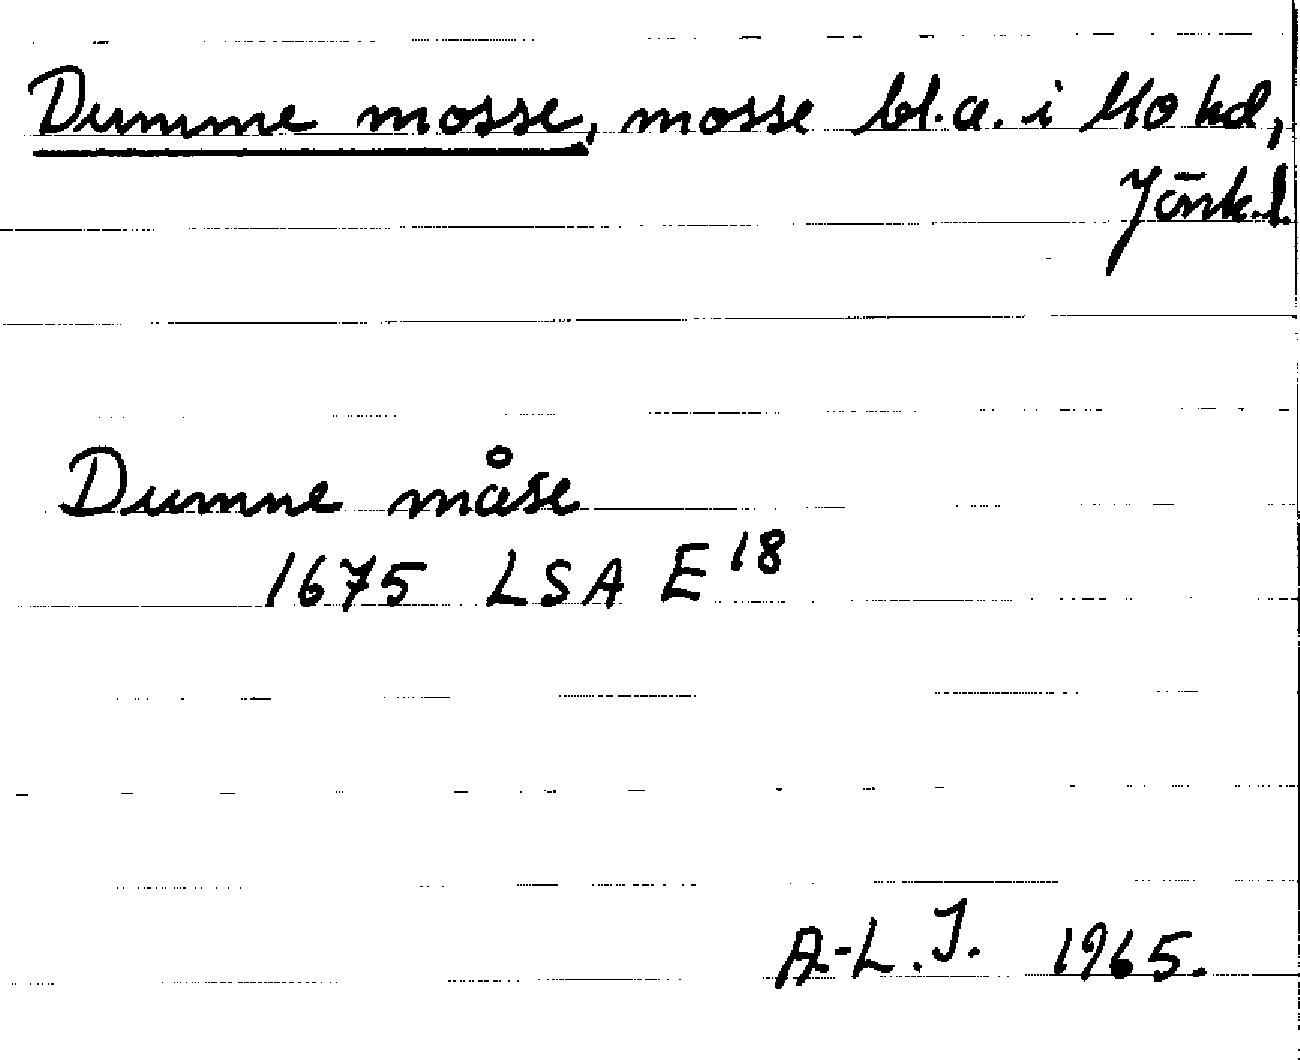 Dumme mosse, mosse bl.a. i Mo hd,
Jönk.l.
Dumne måse
1675 LSA E 18
A-L.J. 1965.